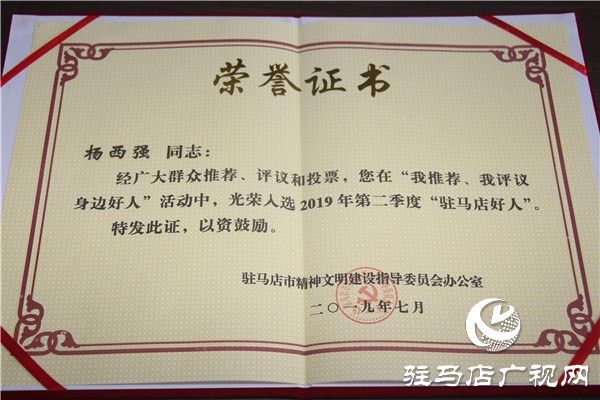 荣誉证书
杨西强 同志：
经广大群众推荐、评议和投票，您在“我推荐、我评议
身边好人”活动中，光荣入选2019年第二季度“驻马店好人”。
特发此证，以资鼓励。
驻马店市精神文明建设指导委员会办公室
二〇一九年七月
驻马店广视网